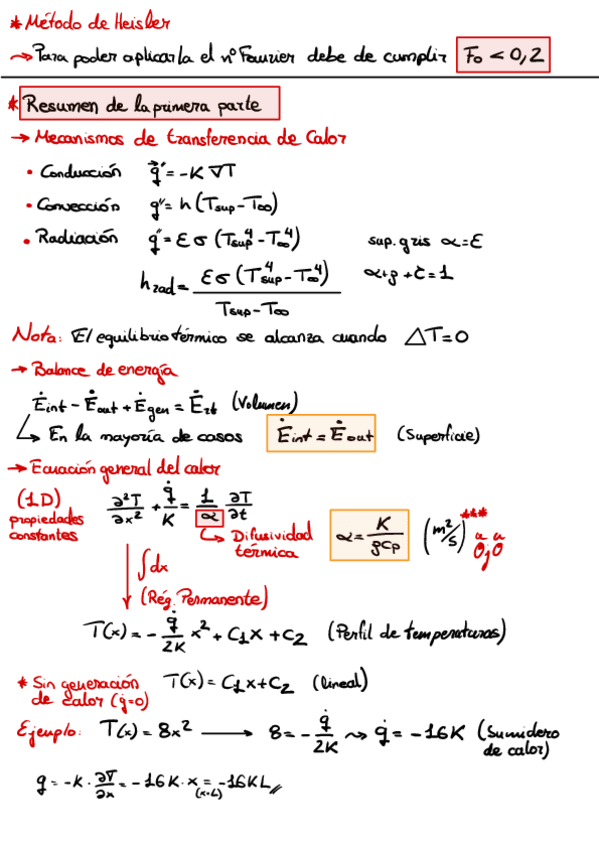 * Método de Heisler
→ Para poder aplicarla el nº Fourier debe de cumplir Fo < 0,2
* Resumen de la primera parte
→ Mecanismos de transferencia de Calor
• Conducción q⃗″ = -K ∇T
• Convección q″ = h (Tsup - T∞)
• Radiación q″ = ε σ (Tsup⁴ - T∞⁴) sup. gris α = ε
hrad = εσ (Tsup⁴ - T∞⁴) / (Tsup - T∞) α + ρ + τ = 1
Nota: El equilibrio térmico se alcanza cuando ΔT = 0
→ Balance de energía
Ėint - Ėout + Ėgen = Ėst (Volumen)
↳ En la mayoría de casos Ėint = Ėout (Superficie)
→ Ecuación general del calor
(1D) ∂²T/∂x² + q̇/K = 1/α ∂T/∂t α = K/ρCp (m²/s) ***
propiedades constantes
↳ Difusividad térmica
∫dx
(Rég. Permanente)
T(x) = - q̇/2K x² + C1x + C2 (Perfil de temperaturas)
* Sin generación de calor (q̇=0) T(x) = C1x + C2 (lineal)
Ejemplo: T(x) = 8x² → 8 = - q̇/2K ⇝ q̇ = -16K (Sumidero de calor)
q = -K · ∂T/∂x = -16K · x = -16KL
(x=L)